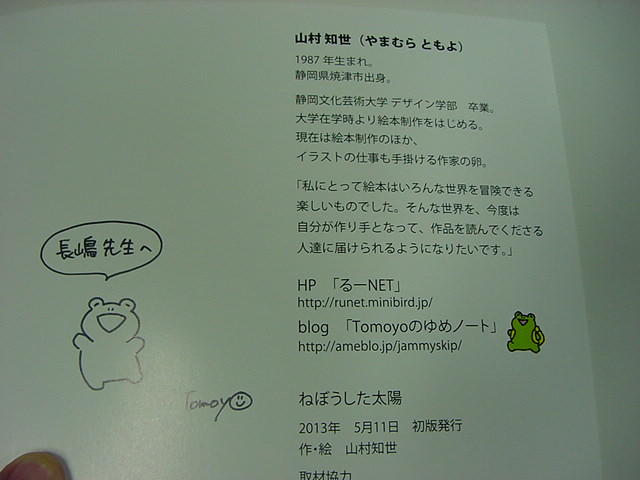 山村 知世（やまむら ともよ）
1987 年生まれ。
静岡県焼津市出身。
静岡文化芸術大学 デザイン学部　卒業。
大学在学時より絵本制作をはじめる。
現在は絵本制作のほか、
イラストの仕事も手掛ける作家の卵。
「私にとって絵本はいろんな世界を冒険できる
楽しいものでした。そんな世界を、今度は
自分が作り手となって、作品を読んでくださる
人達に届けられるようになりたいです。」
長嶋先生へ
HP　「るーNET」
http://runet.minibird.jp/
blog　「Tomoyoのゆめノート」
http://ameblo.jp/jammyskip/
Tomoyo
ねぼうした太陽
2013年　5月11日　初版発行
作・絵　山村知世
取材協力